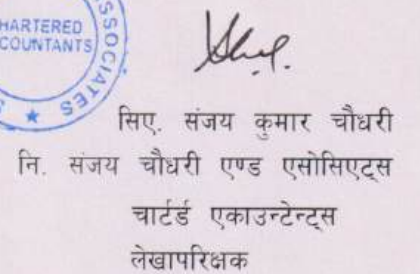 CHARTERED
ACCOUNTANTS
ASSOCIATES
सिए. संजय कुमार चौधरी
नि. संजय चौधरी एण्ड एसोसिएट्स
चार्टर्ड एकाउन्टेन्ट्स
लेखापरिक्षक